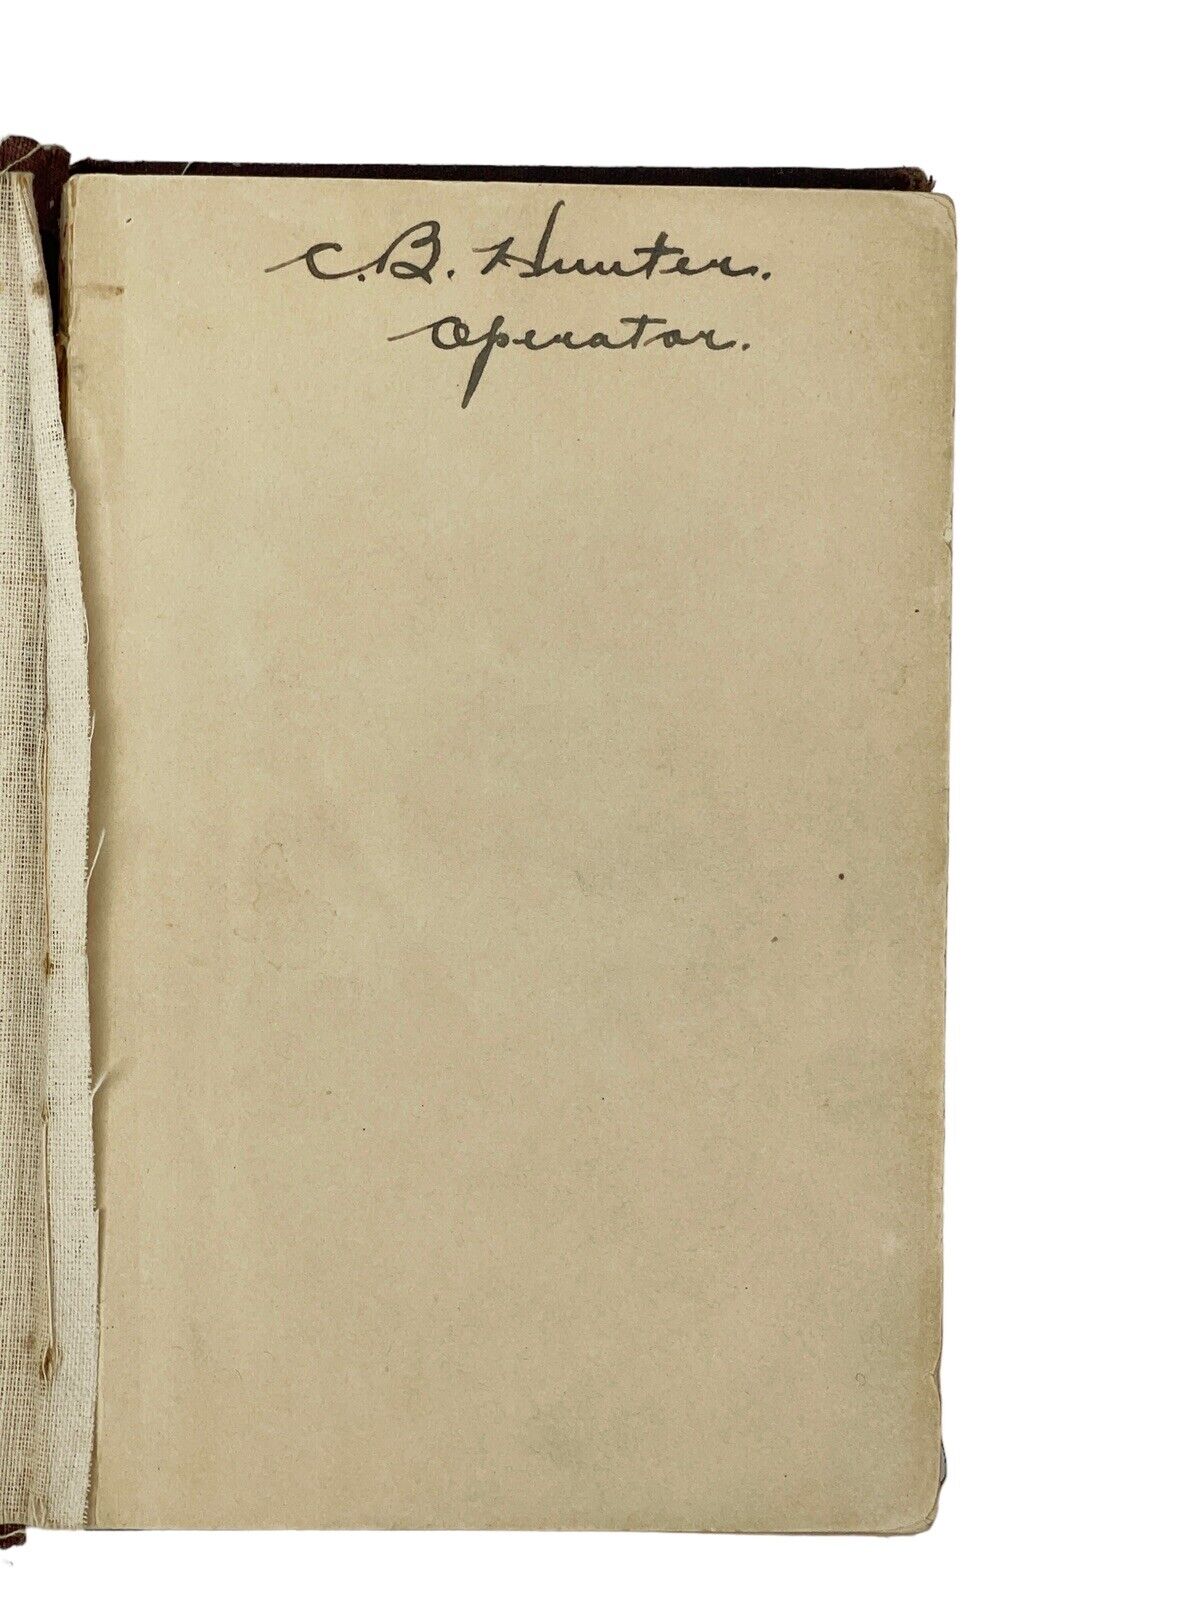 C. B. Hunter.
Operator.